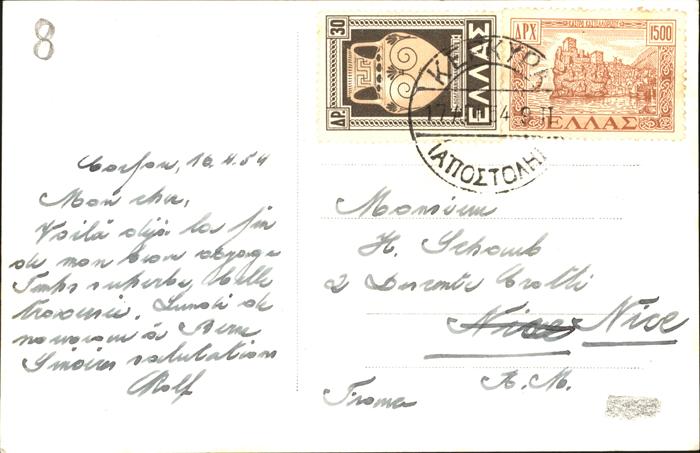 8
30
ΔΡ
ΕΛΛΑΣ
ΔΡΧ
1500
ΕΛΛΑΣ
ΚΕΡΚΥΡΑ
54 9 Π
(ΑΠΟΣΤΟΛΗ
Corfou, 16.4.54
Mon cher,
Voilà déjà la fin
de mon beau voyage
Temps superbe, belle
traversée. Lundi de
nouveau à Berne
Sincères salutations
Rolf
Monsieur
H. Schaub
2 Descente Crotti
Nice Nice
A. M.
France